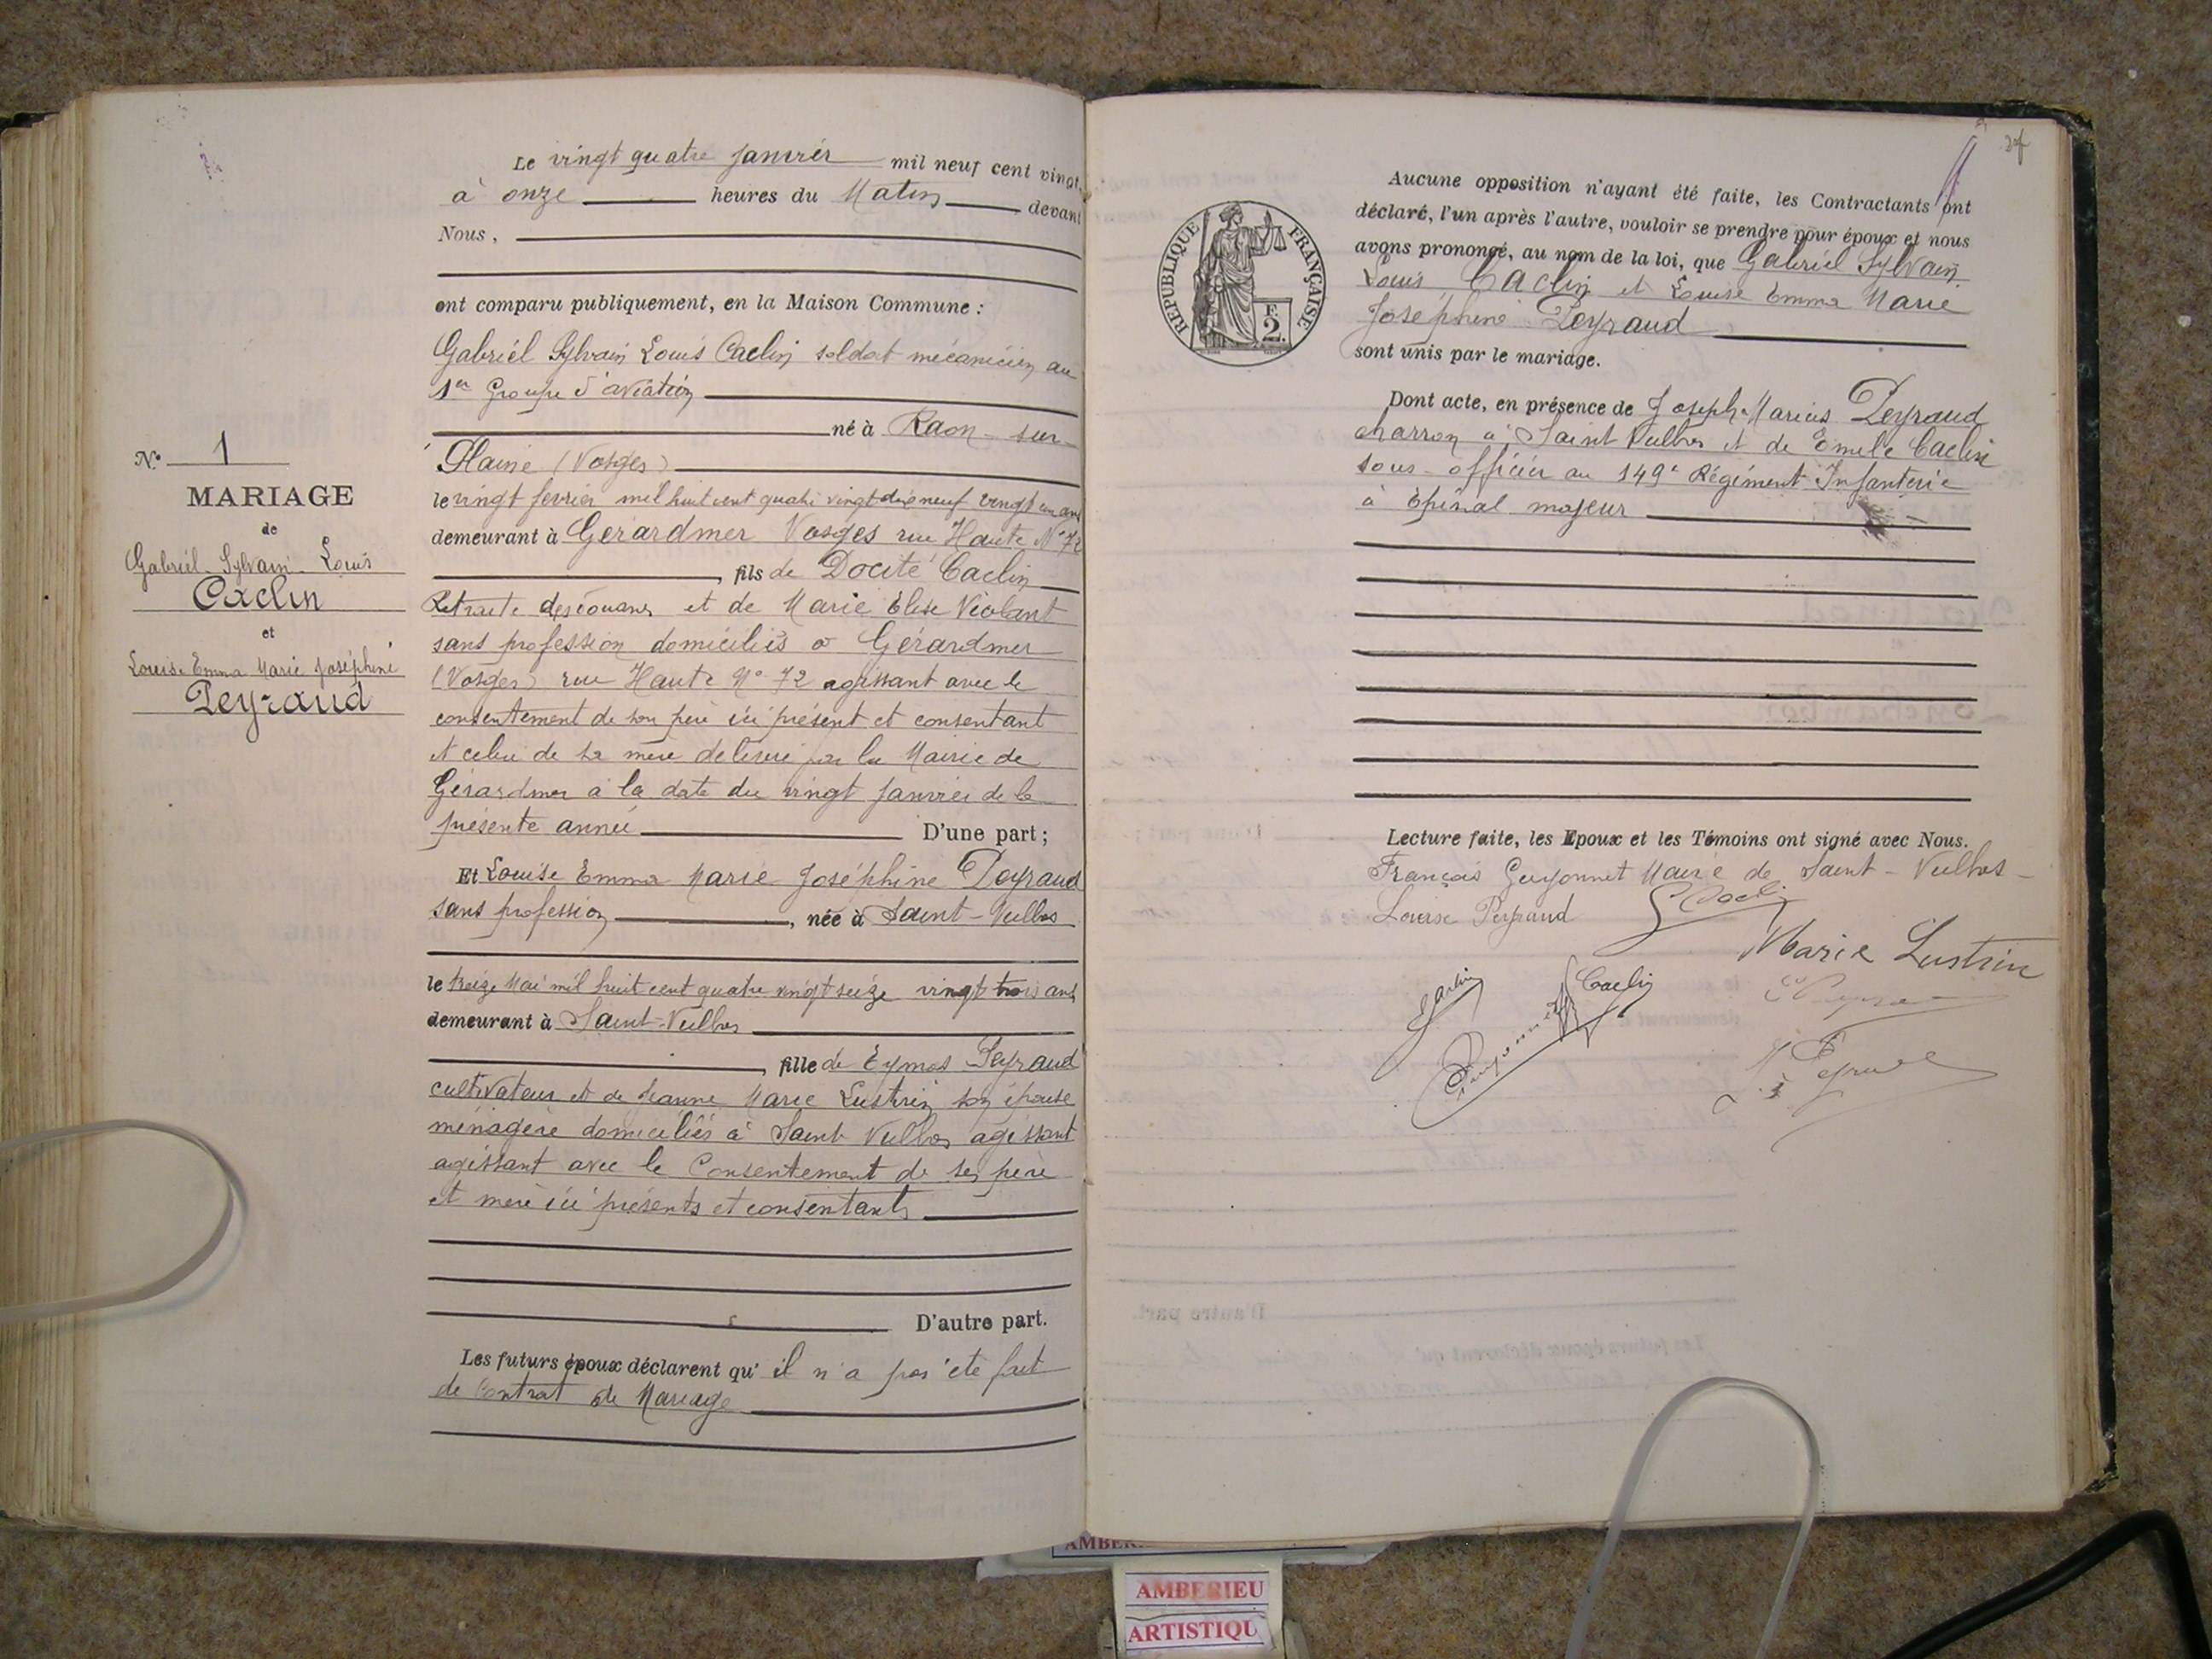 Le vingt quatre janvier mil neuf cent vingt,
à onze heures du Matin devant
Nous,
ont comparu publiquement, en la Maison Commune :
Gabriel Sylvain Louis Caclin soldat mécanicien au
1er Groupe d'aviation
né à Raon-sur-
Plaine (Vosges)
le vingt fevrier mil huit cent quatre vingt dix neuf vingt un ans
demeurant à Gerardmer Vosges rue Haute N° 72
, fils de Docité Caclin
Retraité des douanes et de Marie Elise Violant
sans profession domiciliés à Gérardmer
(Vosges) rue Haute N° 72 agissant avec le
consentement de son père ici présent et consentant
et celui de sa mère délivré par la Mairie de
Gérardmer à la date du vingt janvier de la
présente année D'une part ;
N° 1
MARIAGE
de
Gabriel-Sylvain-Louis
Caclin
et
Louise Emma Marie Joséphine
Peyraud
Et Louise Emma Marie Joséphine Peyraud
sans profession , née à Saint-Vulbas
le treize Mai mil huit cent quatre vingt seize vingt trois ans
demeurant à Saint-Vulbas
, fille de Eymas Peyraud
cultivateur et de Jeanne Marie Lustrin son épouse
ménagère domiciliés à Saint Vulbas agissant
agissant avec le Consentement de ses père
et mère ici présents et consentants
D'autre part.
Les futurs époux déclarent qu' il n'a pas été fait
de Contrat de Mariage
27
RÉPUBLIQUE FRANÇAISE
F.
2.
Aucune opposition n'ayant été faite, les Contractants ont
déclaré, l'un après l'autre, vouloir se prendre pour époux et nous
avons prononcé, au nom de la loi, que Gabriel Sylvain
Louis Caclin et Louise Emma Marie
Joséphine Peyraud
sont unis par le mariage.
Dont acte, en présence de Joseph-Marius Peyraud
charron à Saint Vulbas et de Emile Caclin
sous-officier au 149e Régiment Infanterie
à Epinal majeur
Lecture faite, les Epoux et les Témoins ont signé avec Nous.
François Guyonnet Maire de Saint-Vulbas-
Louise Peyraud G Caclin
Marie Lustrin
Caclin
Guyonnet
AMBERIEU
ARTISTIQU